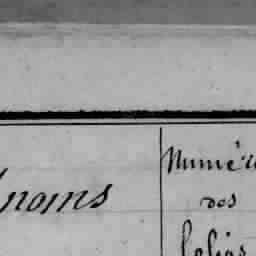 noms
Numéro
des
folios